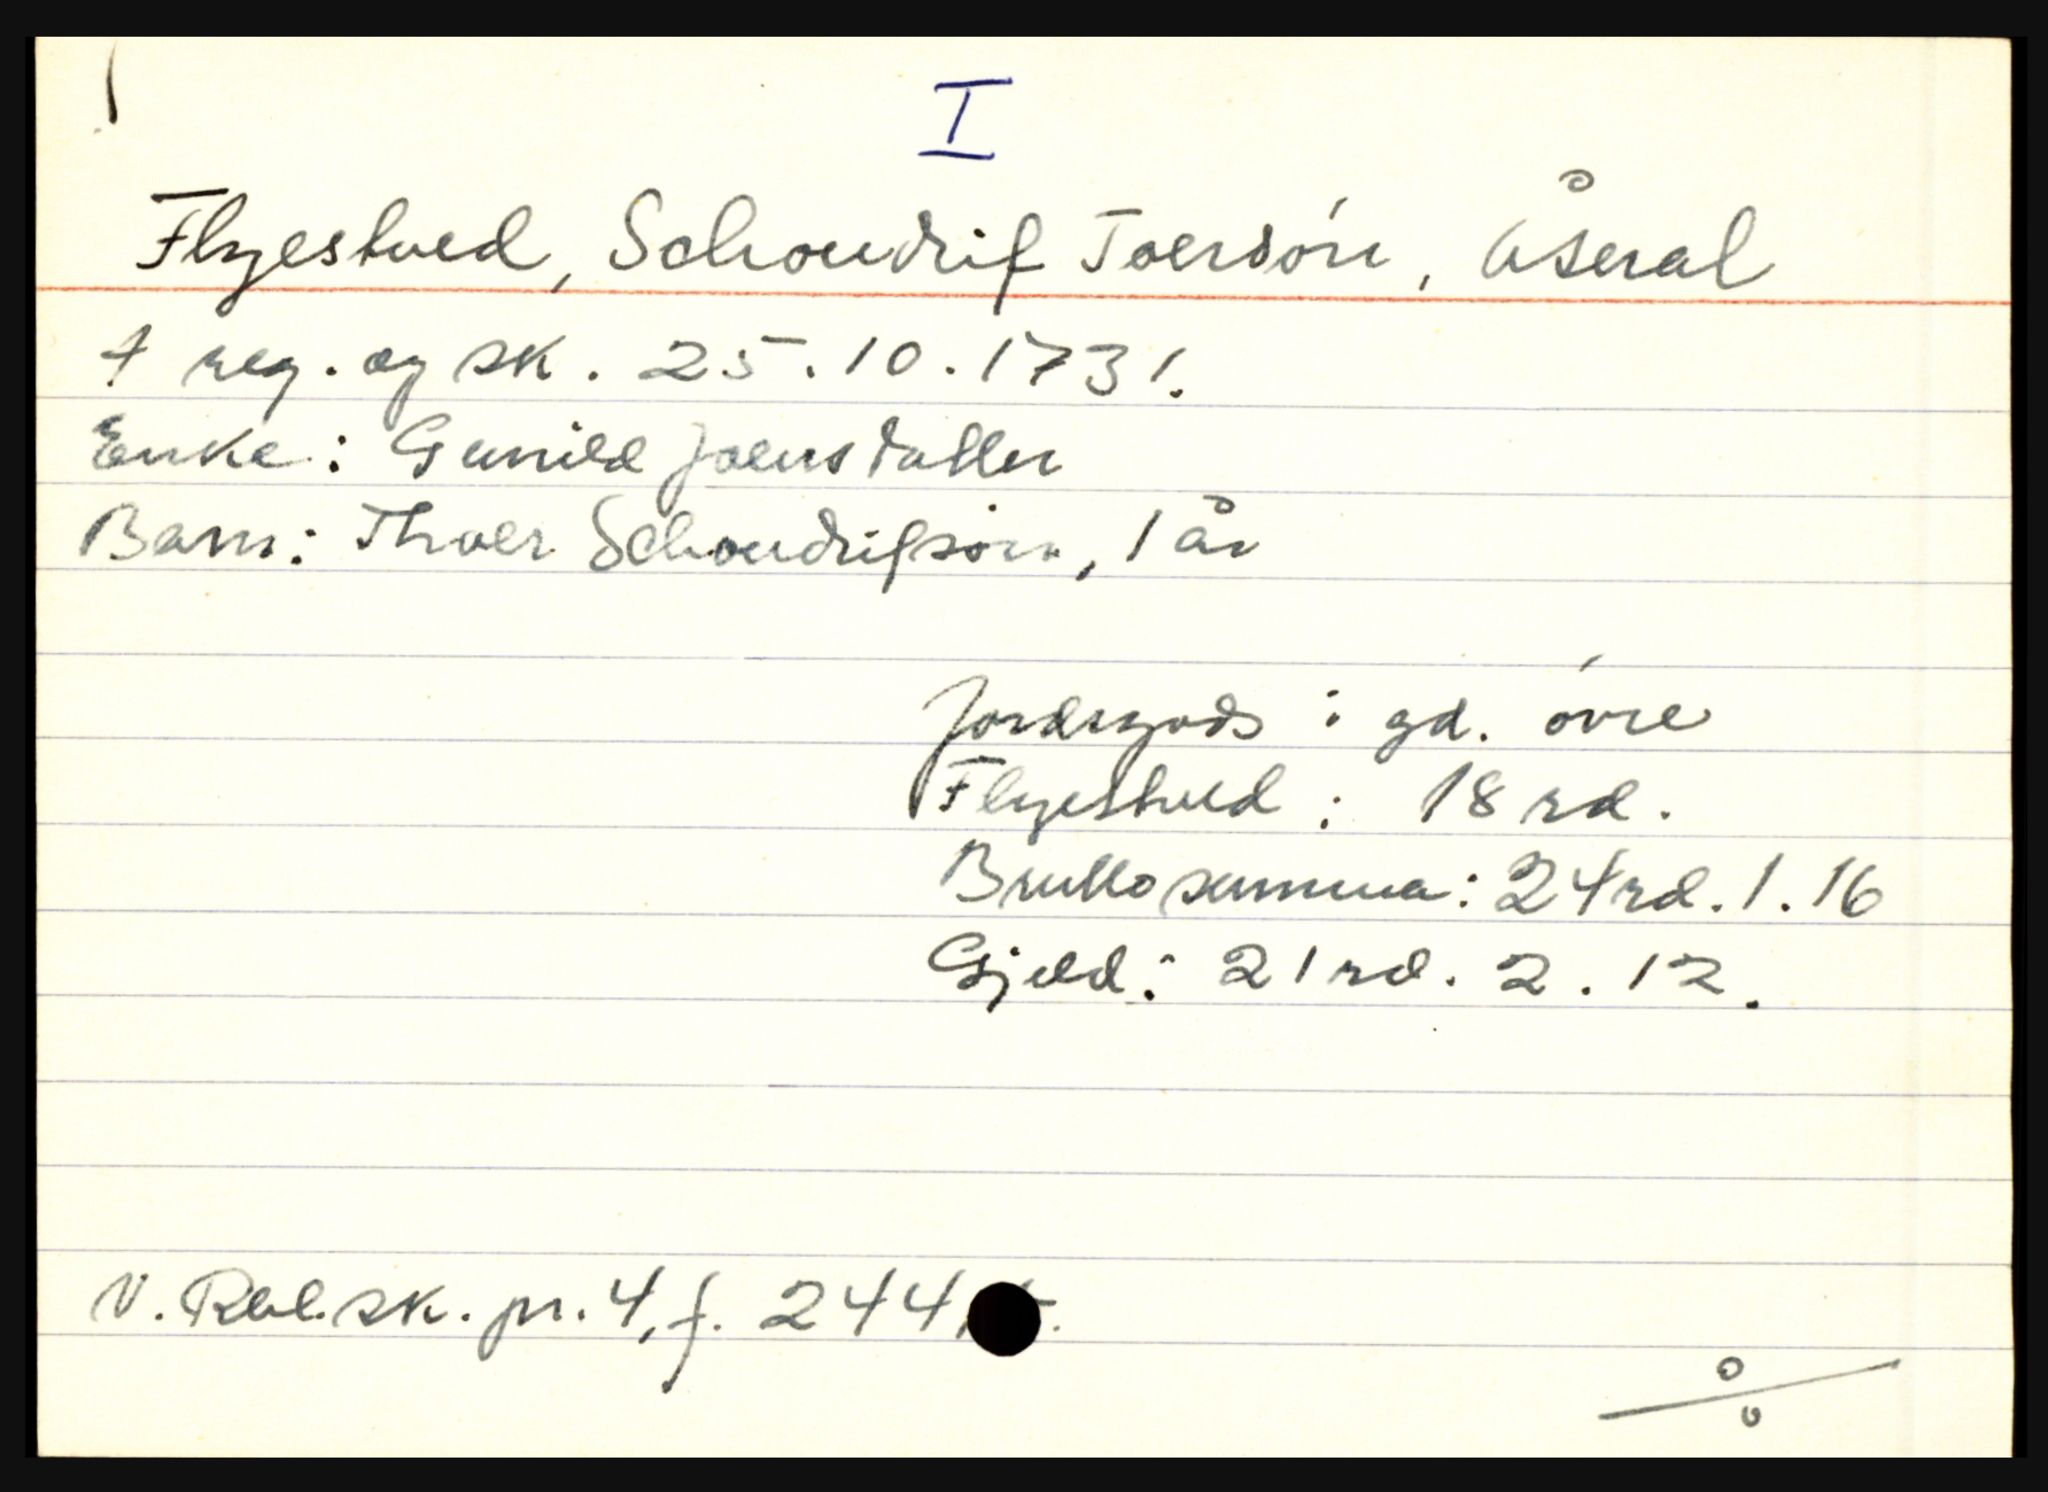 I
Flyestved, Schoudrif Toersón, Åseral
† reg. og sk. 25.10.1731.
Enke: Gunild Joensdatter
Barn: Thoer Schoudrifsón, 1 år
Jordegods: gd. óvre
Flyestved: 18 rd.
Bruttosumma: 24 rd. 1. 16
Gjeld: 21 rd. 2. 12.
V. Rbl. sk. pr. 4, f. 244